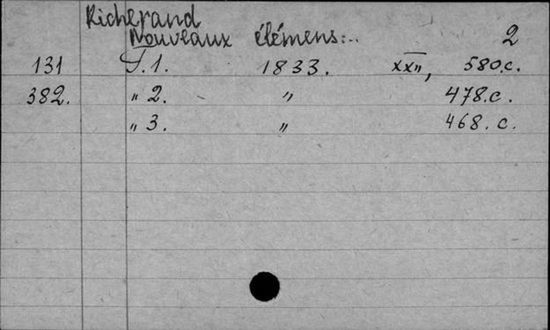 Richerand
Nouveaux élémens:.. 2
131 T.1. 1833. XXII, 580.c.
382. „ 2. „ 478.c.
„ 3. „ 468.c.